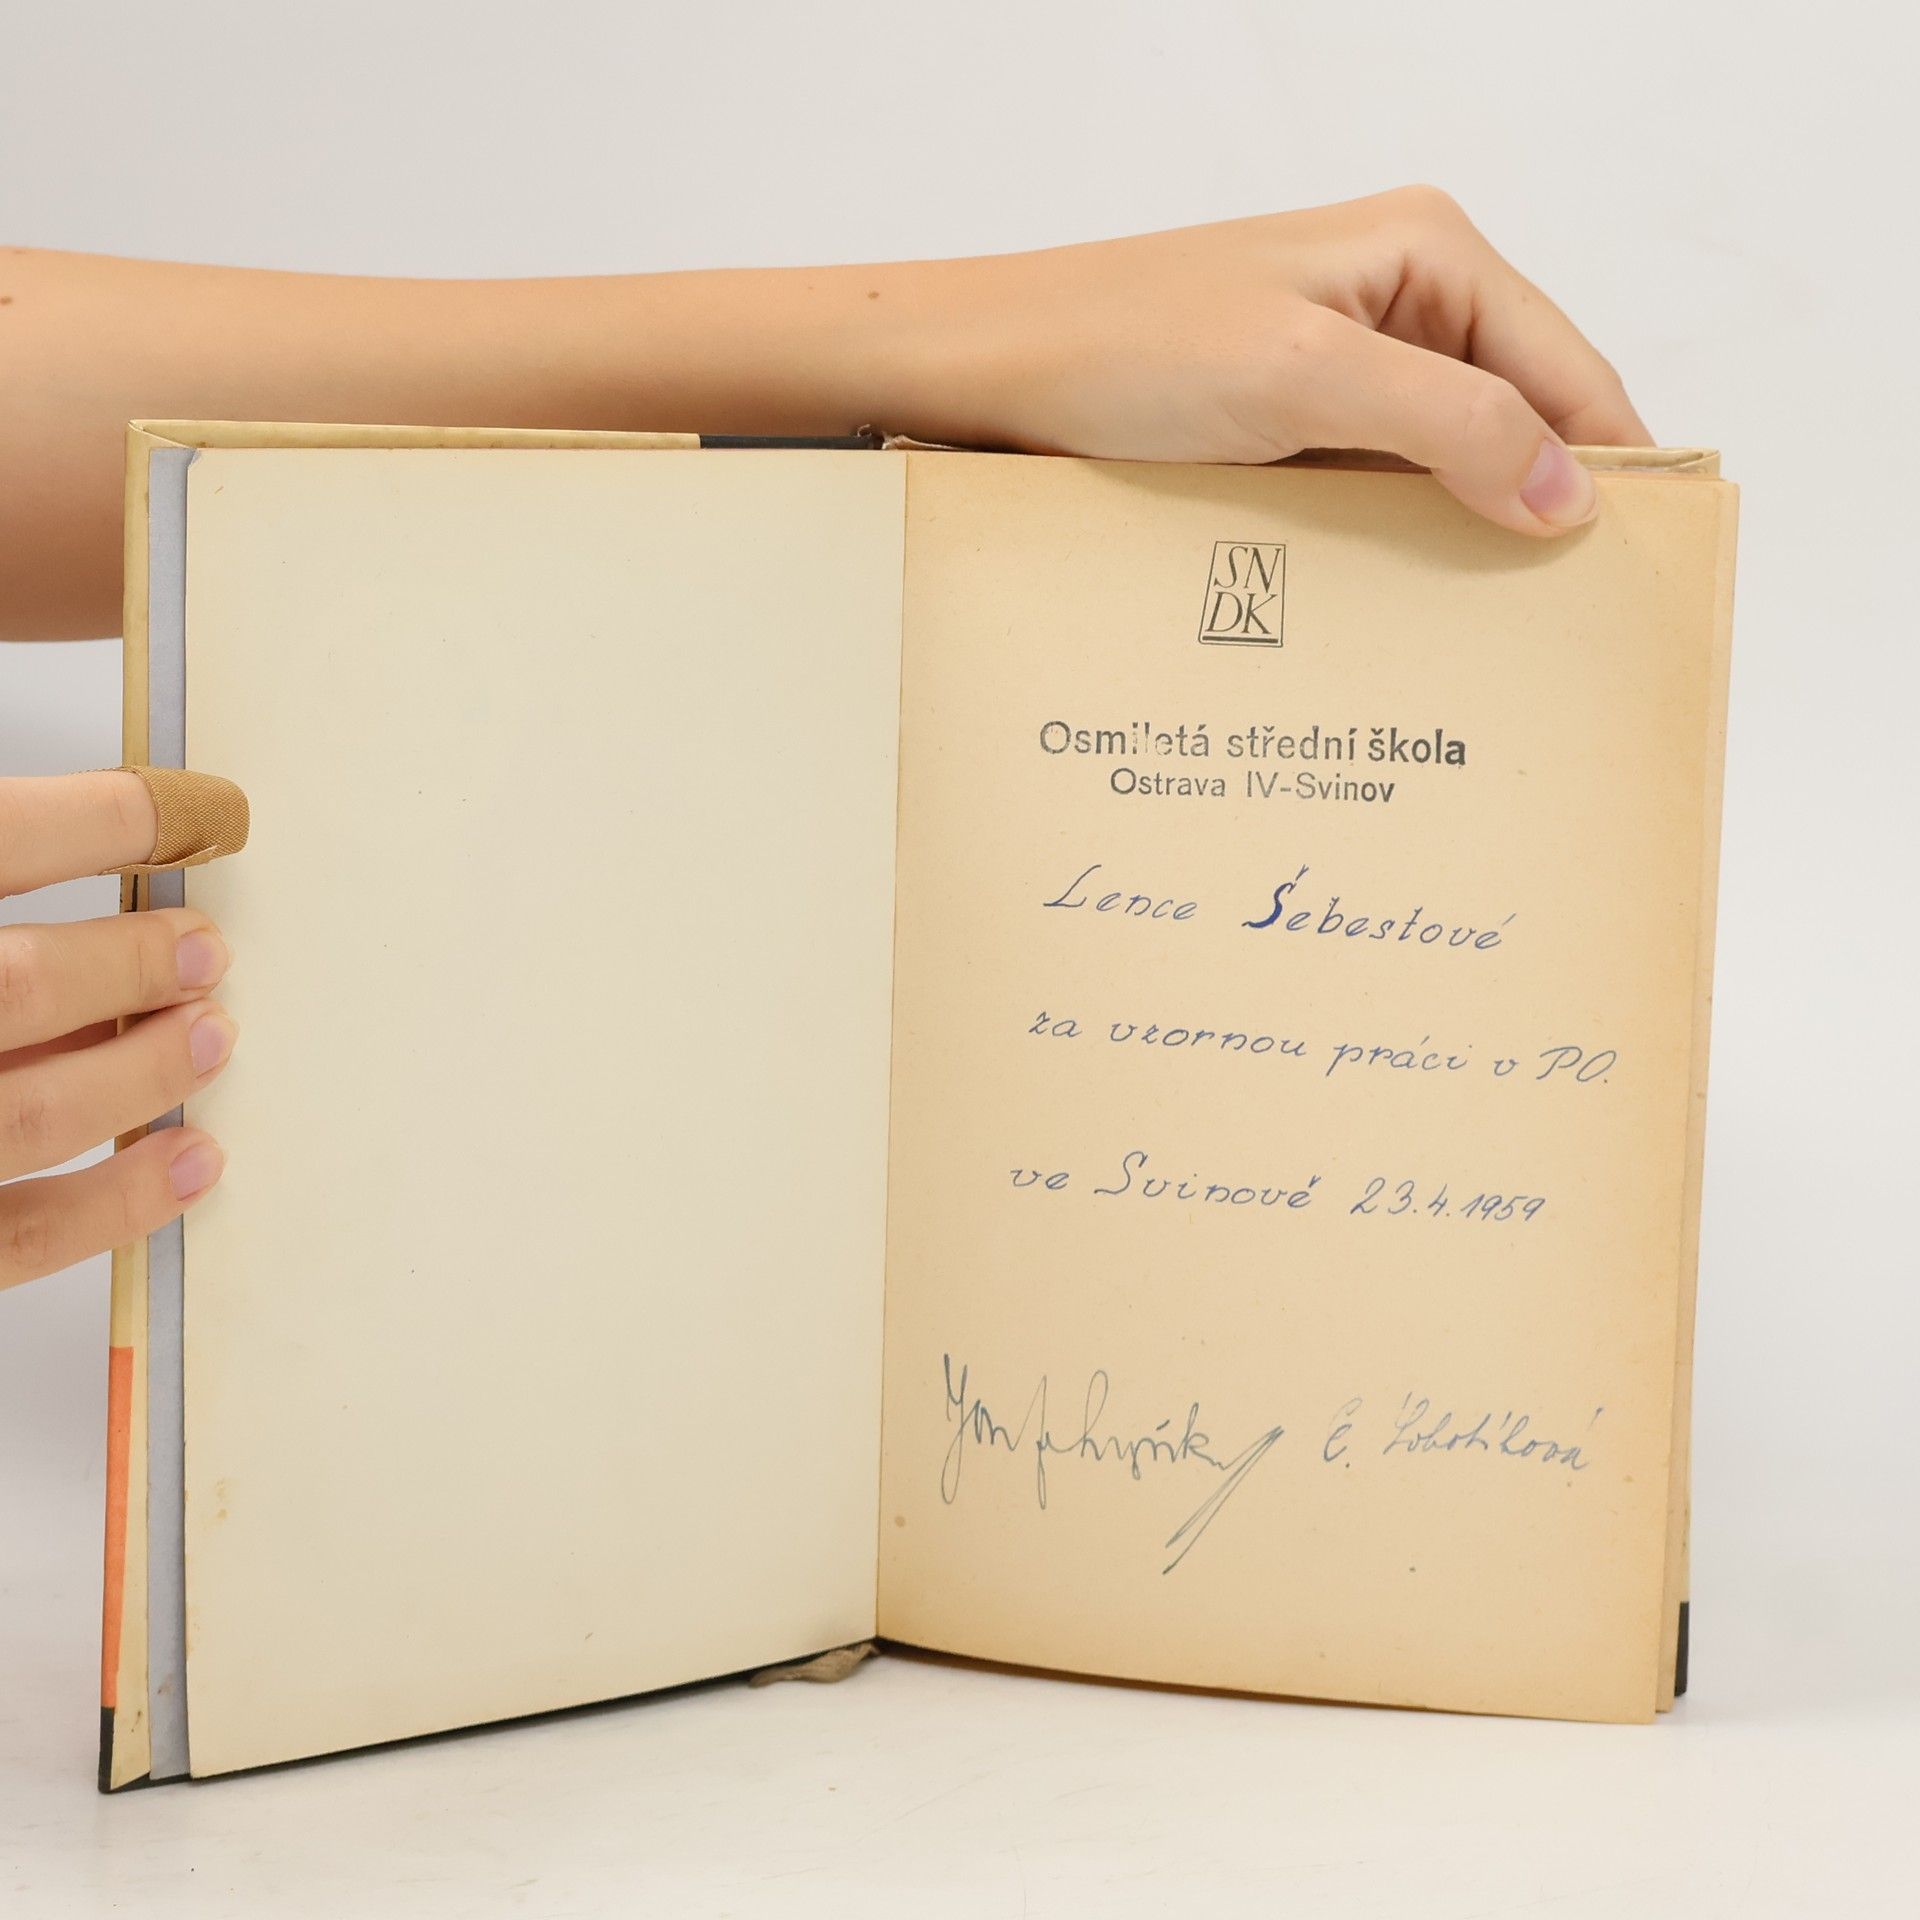 SN
DK
Osmiletá střední škola
Ostrava IV-Svinov
Lence Šebestové
za vzornou práci v PO.
ve Svinově 23.4.1959
E.